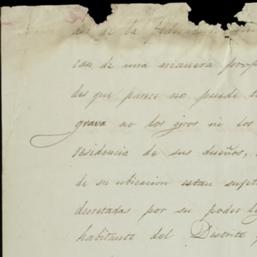 de la
can de una manera
des que parece no puede
grava no los giros in los
residencia de sus dueños,
de su ubicacion estan
decretadas por su poder
habitante del Distrito